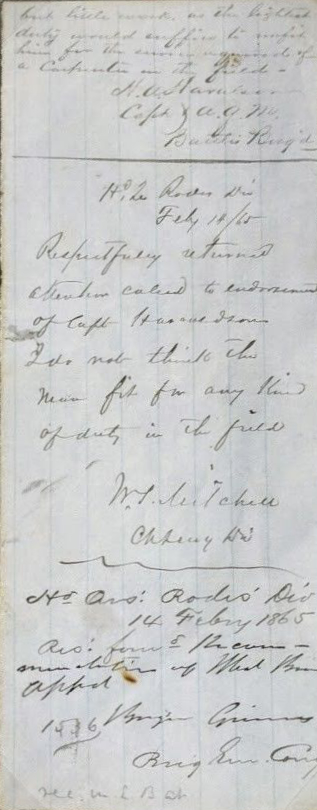 but little work, as the lightest
duty would suffice to unfit
him for the service required of
a Carpenter in the field –
Capt & A.Q.M.
Battle's Brig'd
Hd. Qrs Rodes Div
Feby 14/65
Respectfully returned
attention called to endorsement
of Capt
I do not think the
man fit for any kind
of duty in the field
W. S. Mitchell
Ch Surg Div
Hd Qrs. Rodes' Div
14 Febry 1865
Res. forwd Recom-
mendation of Med
Appd
Bryan Grimes
Brig Gen. Comg